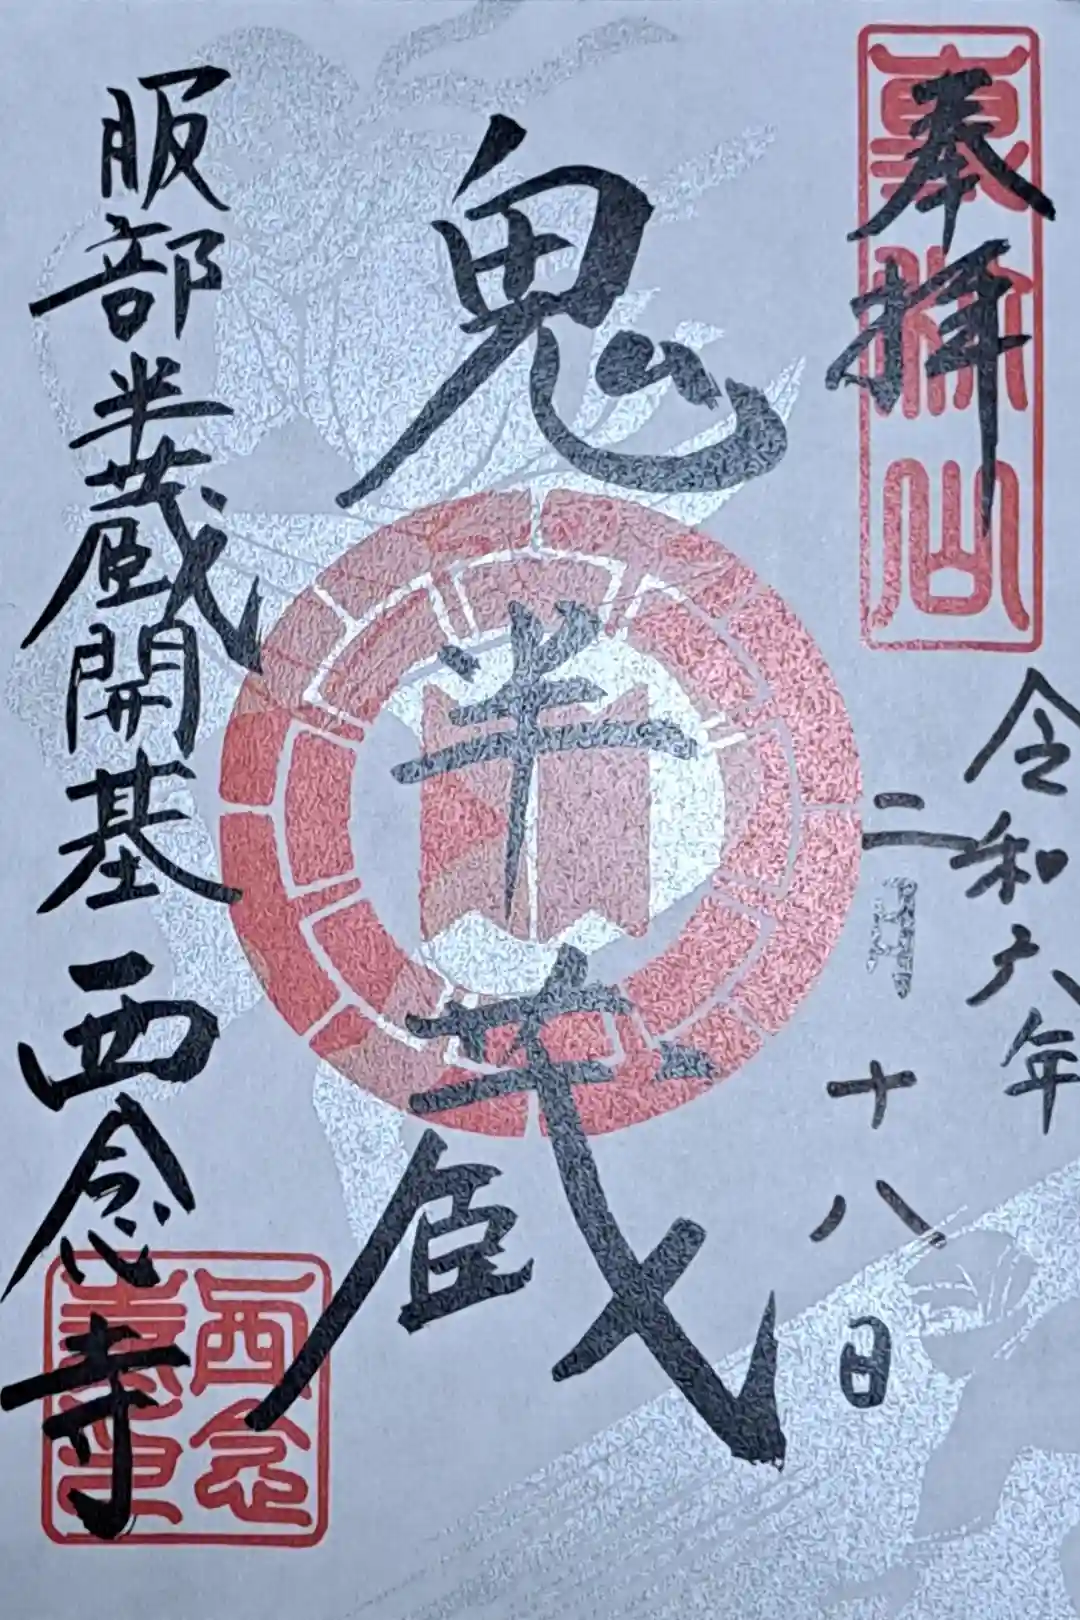 奉拝
令和六年
二月十八日
鬼半蔵
服部半蔵開基 西念寺
西念